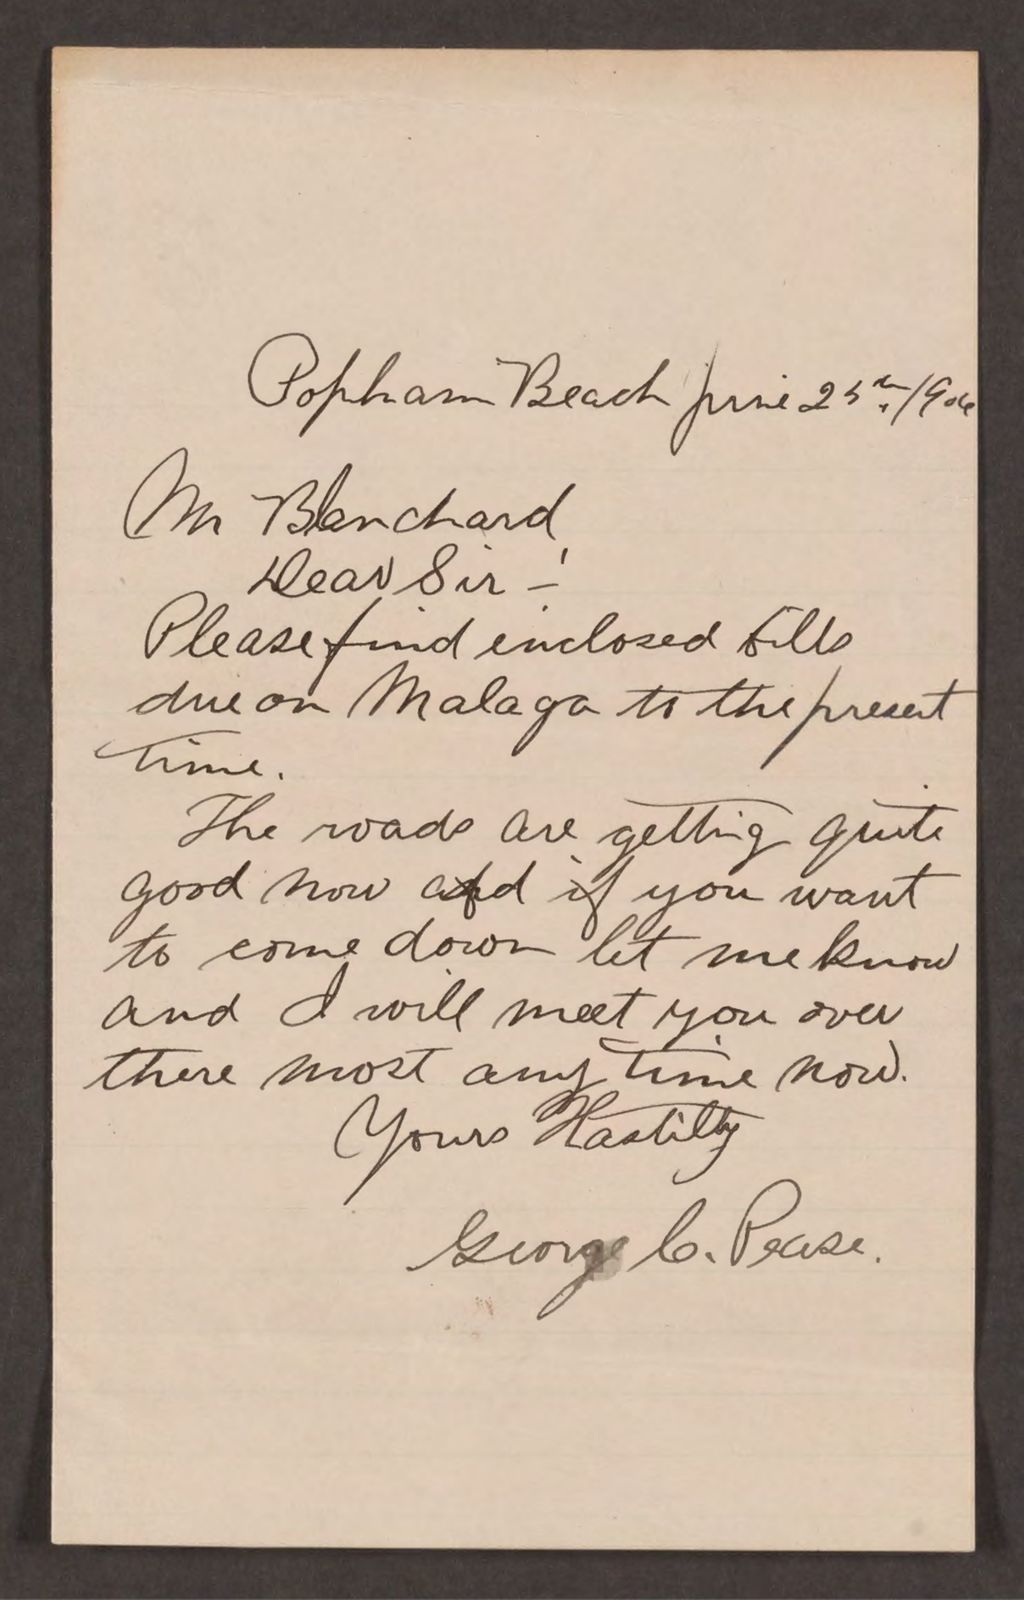 Popham Beach June 25th, 1906
Mr Blanchard
Dear Sir -!
Please find enclosed bills
due on Malaga to the present
time.
The roads are getting quite
good now and if you want
to come down let me know
and I will meet you over
there most any time now.
Yours Hastilty
George C. Pease.